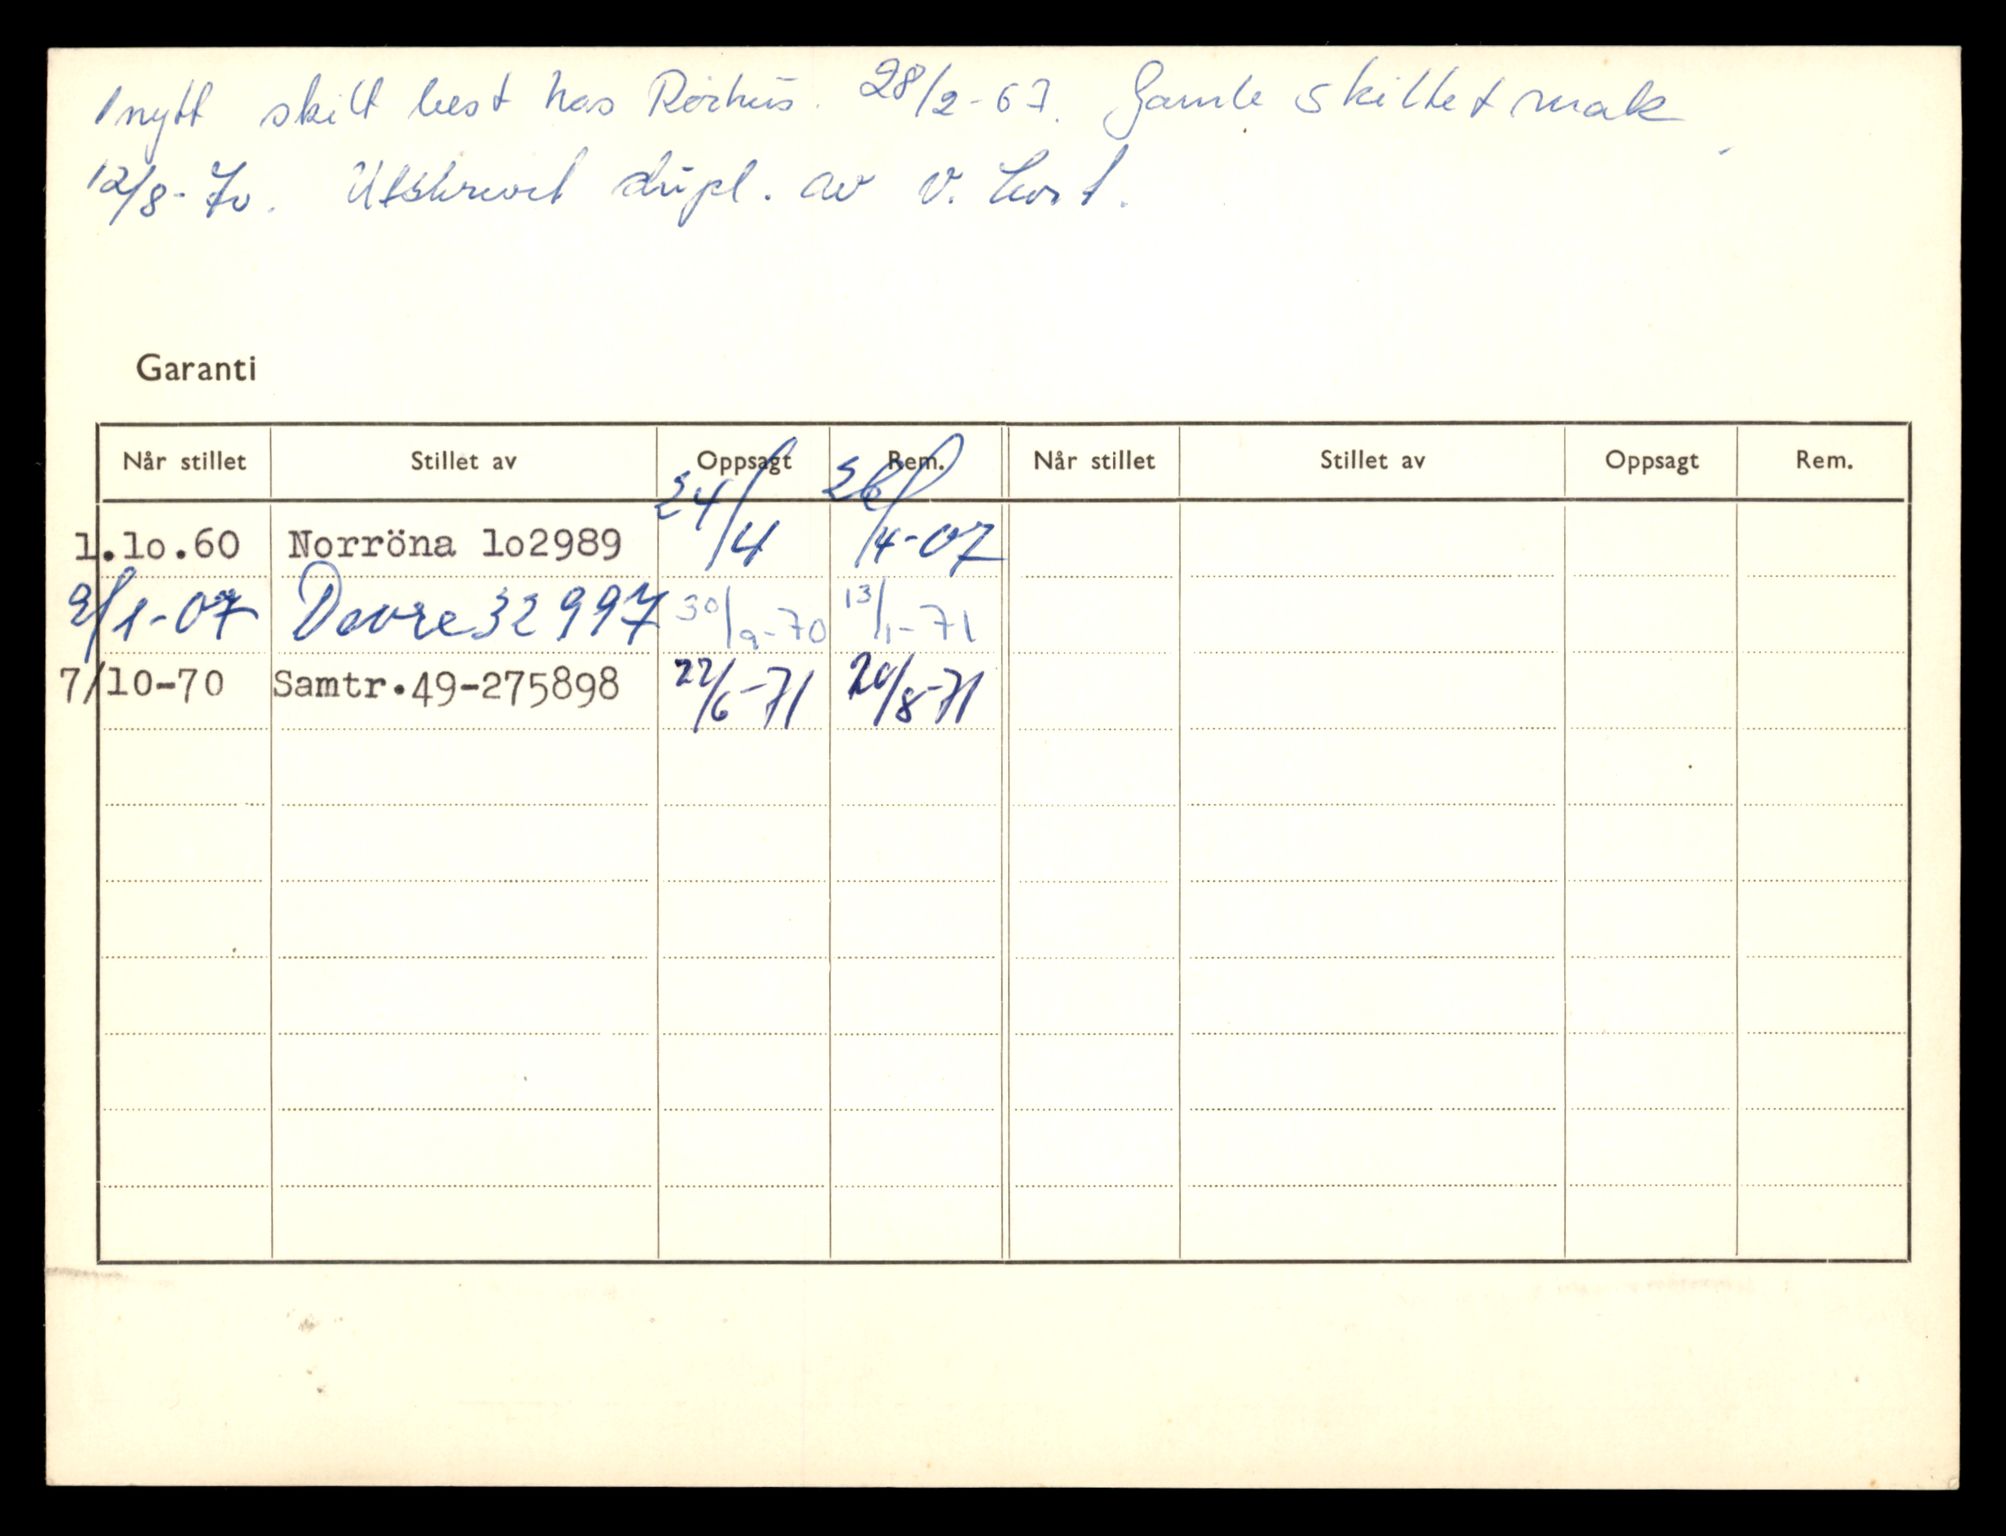 1 nytt skilt best hos Rörhus. 28/2-67. Gamle skiltet mak
12/8-70. Utskrevet dupl. av v. kort.
Garanti
Når stillet Stillet av Oppsagt Rem. Når stillet Stillet av Oppsagt Rem.
1.1o.60 Norröna 1o2989 24/4 26/4-67
9/1-67 Dovre 32997 30/9-70 13/1-71
7/10-70 Samtr.49-275898 22/6-71 20/8-71